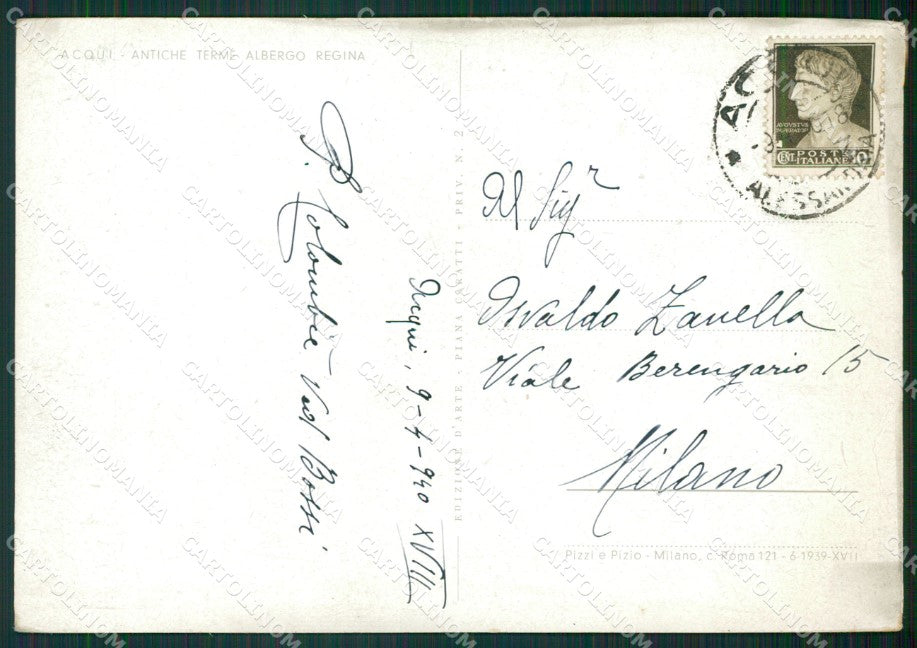 ACQUI - ANTICHE TERME - ALBERGO REGINA
P. Colombo Ved Bossi
Acqui, 9-4-940 XVIII
EDIZIONE D'ARTE - PIANA - PRIV. N. 2
POSTE
ITALIANE
ALESSANDRIA
Al Sigr
Osvaldo Zanella
Viale Berengario 15
Milano
Pizzi e Pizio - Milano, c. Roma 121 - 6-1939-XVII
CARTOLINOMANIA